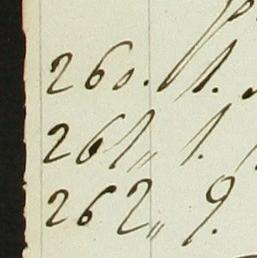 260. 1.
261„ 1.
262„ 9.